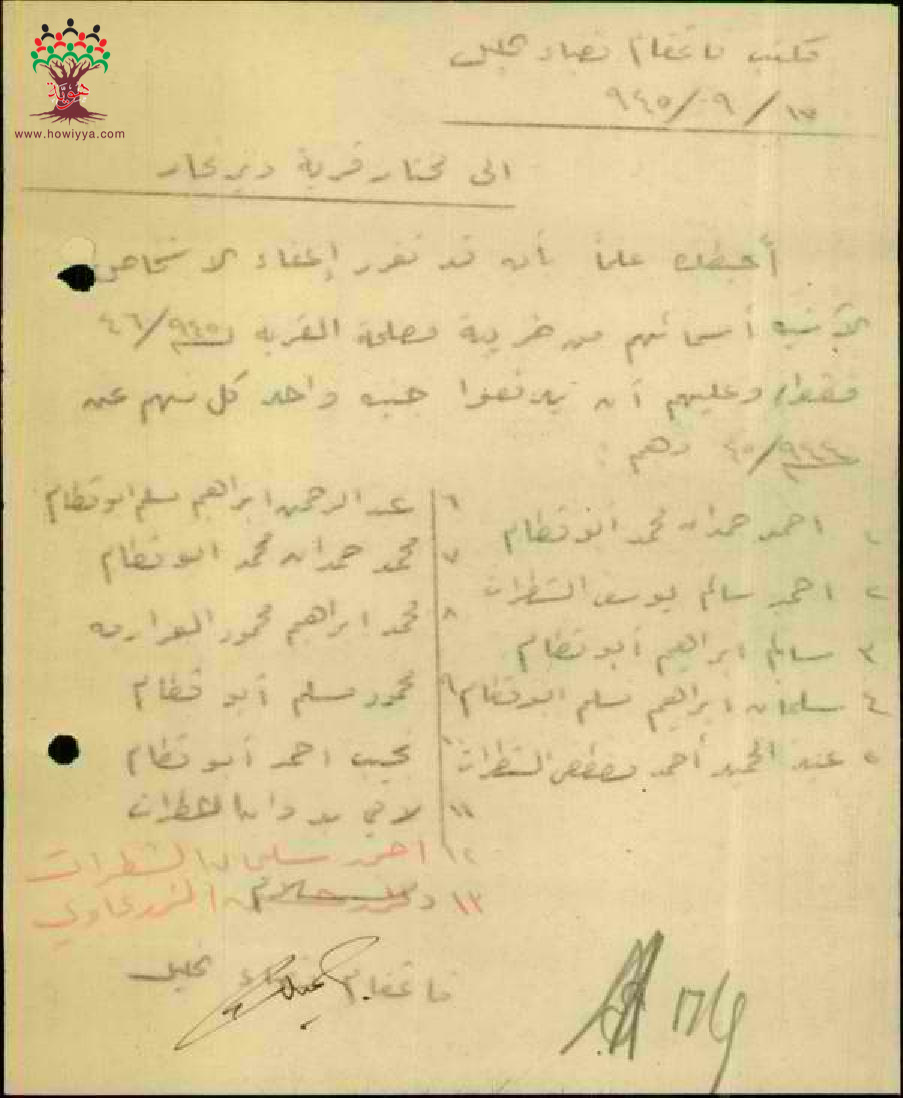 هوية
www.howiyya.com
مكتب قائمقام قضاء الخليل
١٣/٩/٩٤٥
الى مختار قرية دير نخاز
أحيطك علماً بأنه قد تقرر إعفاء الاشخاص
الآتية أسمائهم من ضريبة مصلحة القرية ل ٤٦/٩٤٥
فقط وعليهم أن يدفعوا جنيه واحد كل منهم عن
٤٥/٩٤٤ وهم :
١ احمد حمدان محمد ابو قطام
٢ احمد سالم يوسف الشطرات
٣ سالم ابراهيم أبو قطام
٤ سلمان ابراهيم مسلم ابو قطام
٥ عبد الحميد أحمد مصطفى الشطرات
٦ عبد الرحمن ابراهيم مسلم ابو قطام
٧ محمد حمدان محمد ابو قطام
٨ محمد ابراهيم محمود العوارمه
٩ محمود مسلم أبو قطام
١٠ نجيب احمد أبو قطام
١١ لافي الشطرات
١٢ احمد سلمان الشطرات
١٣
قائمقام قضاء الخليل